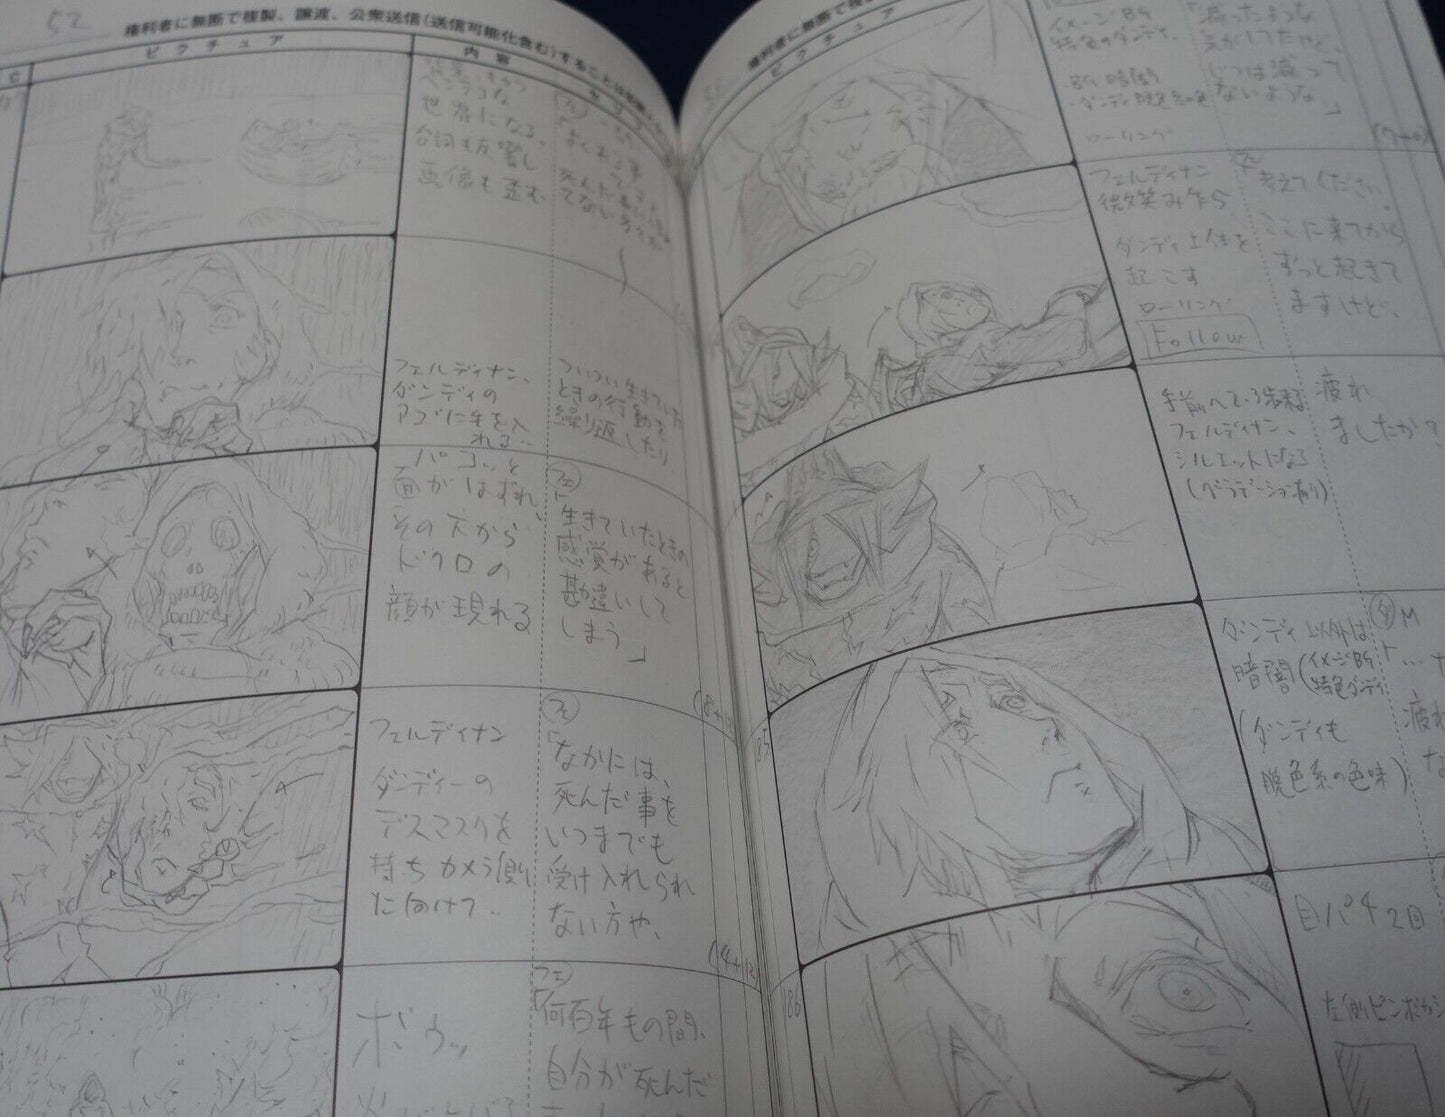 52
権利者に無断で複製、譲渡、公衆送信(送信可能化含む)することは
C
ピクチュア
内容
世界になる、
台詞も反響し
画像も歪む
フェルディナン、
ダンディの
アゴに手を入
れる…
ついつい生きていた
ときの行動を
繰り返したり
パコッと
面がはずれ、
その下から
ドクロの
顔が現れる
フェ
「生きていたときの
感覚があると
勘違いして
しまう」
フェルディナン
ダンディーの
デスマスクを
持ちカメラ側
に向けて‥
フェ
「なかには、
死んだ事を
いつまでも
受け入れられ
ない方や、
(4+12)
ボゥッ
フェ
「何百年もの間、
自分が死んだ
権利者に無断で複
ピクチュア
イメージBG
特色のダンディ、
BG 暗闇
ローリング
「減ったような
気がしてたけど、
じつは減って
ないような」
(7+0)
フェルディナン
微笑み乍ら、
ダンディ上体を
起こす
ローリング
Follow
フェ
考えてください。
ここに来てから
ずっと起きて
ますけど、
手前へ2、3歩来る
フェルディナン、
シルエットになる
(グラデーション有り)
疲れ
ましたか?
185
ダンディ以外は
暗闇(イメージBG
特色ダンディ
(ダンディも
脱色系の色味)
ダ M
「…
疲れ
な
186
目パチ2回